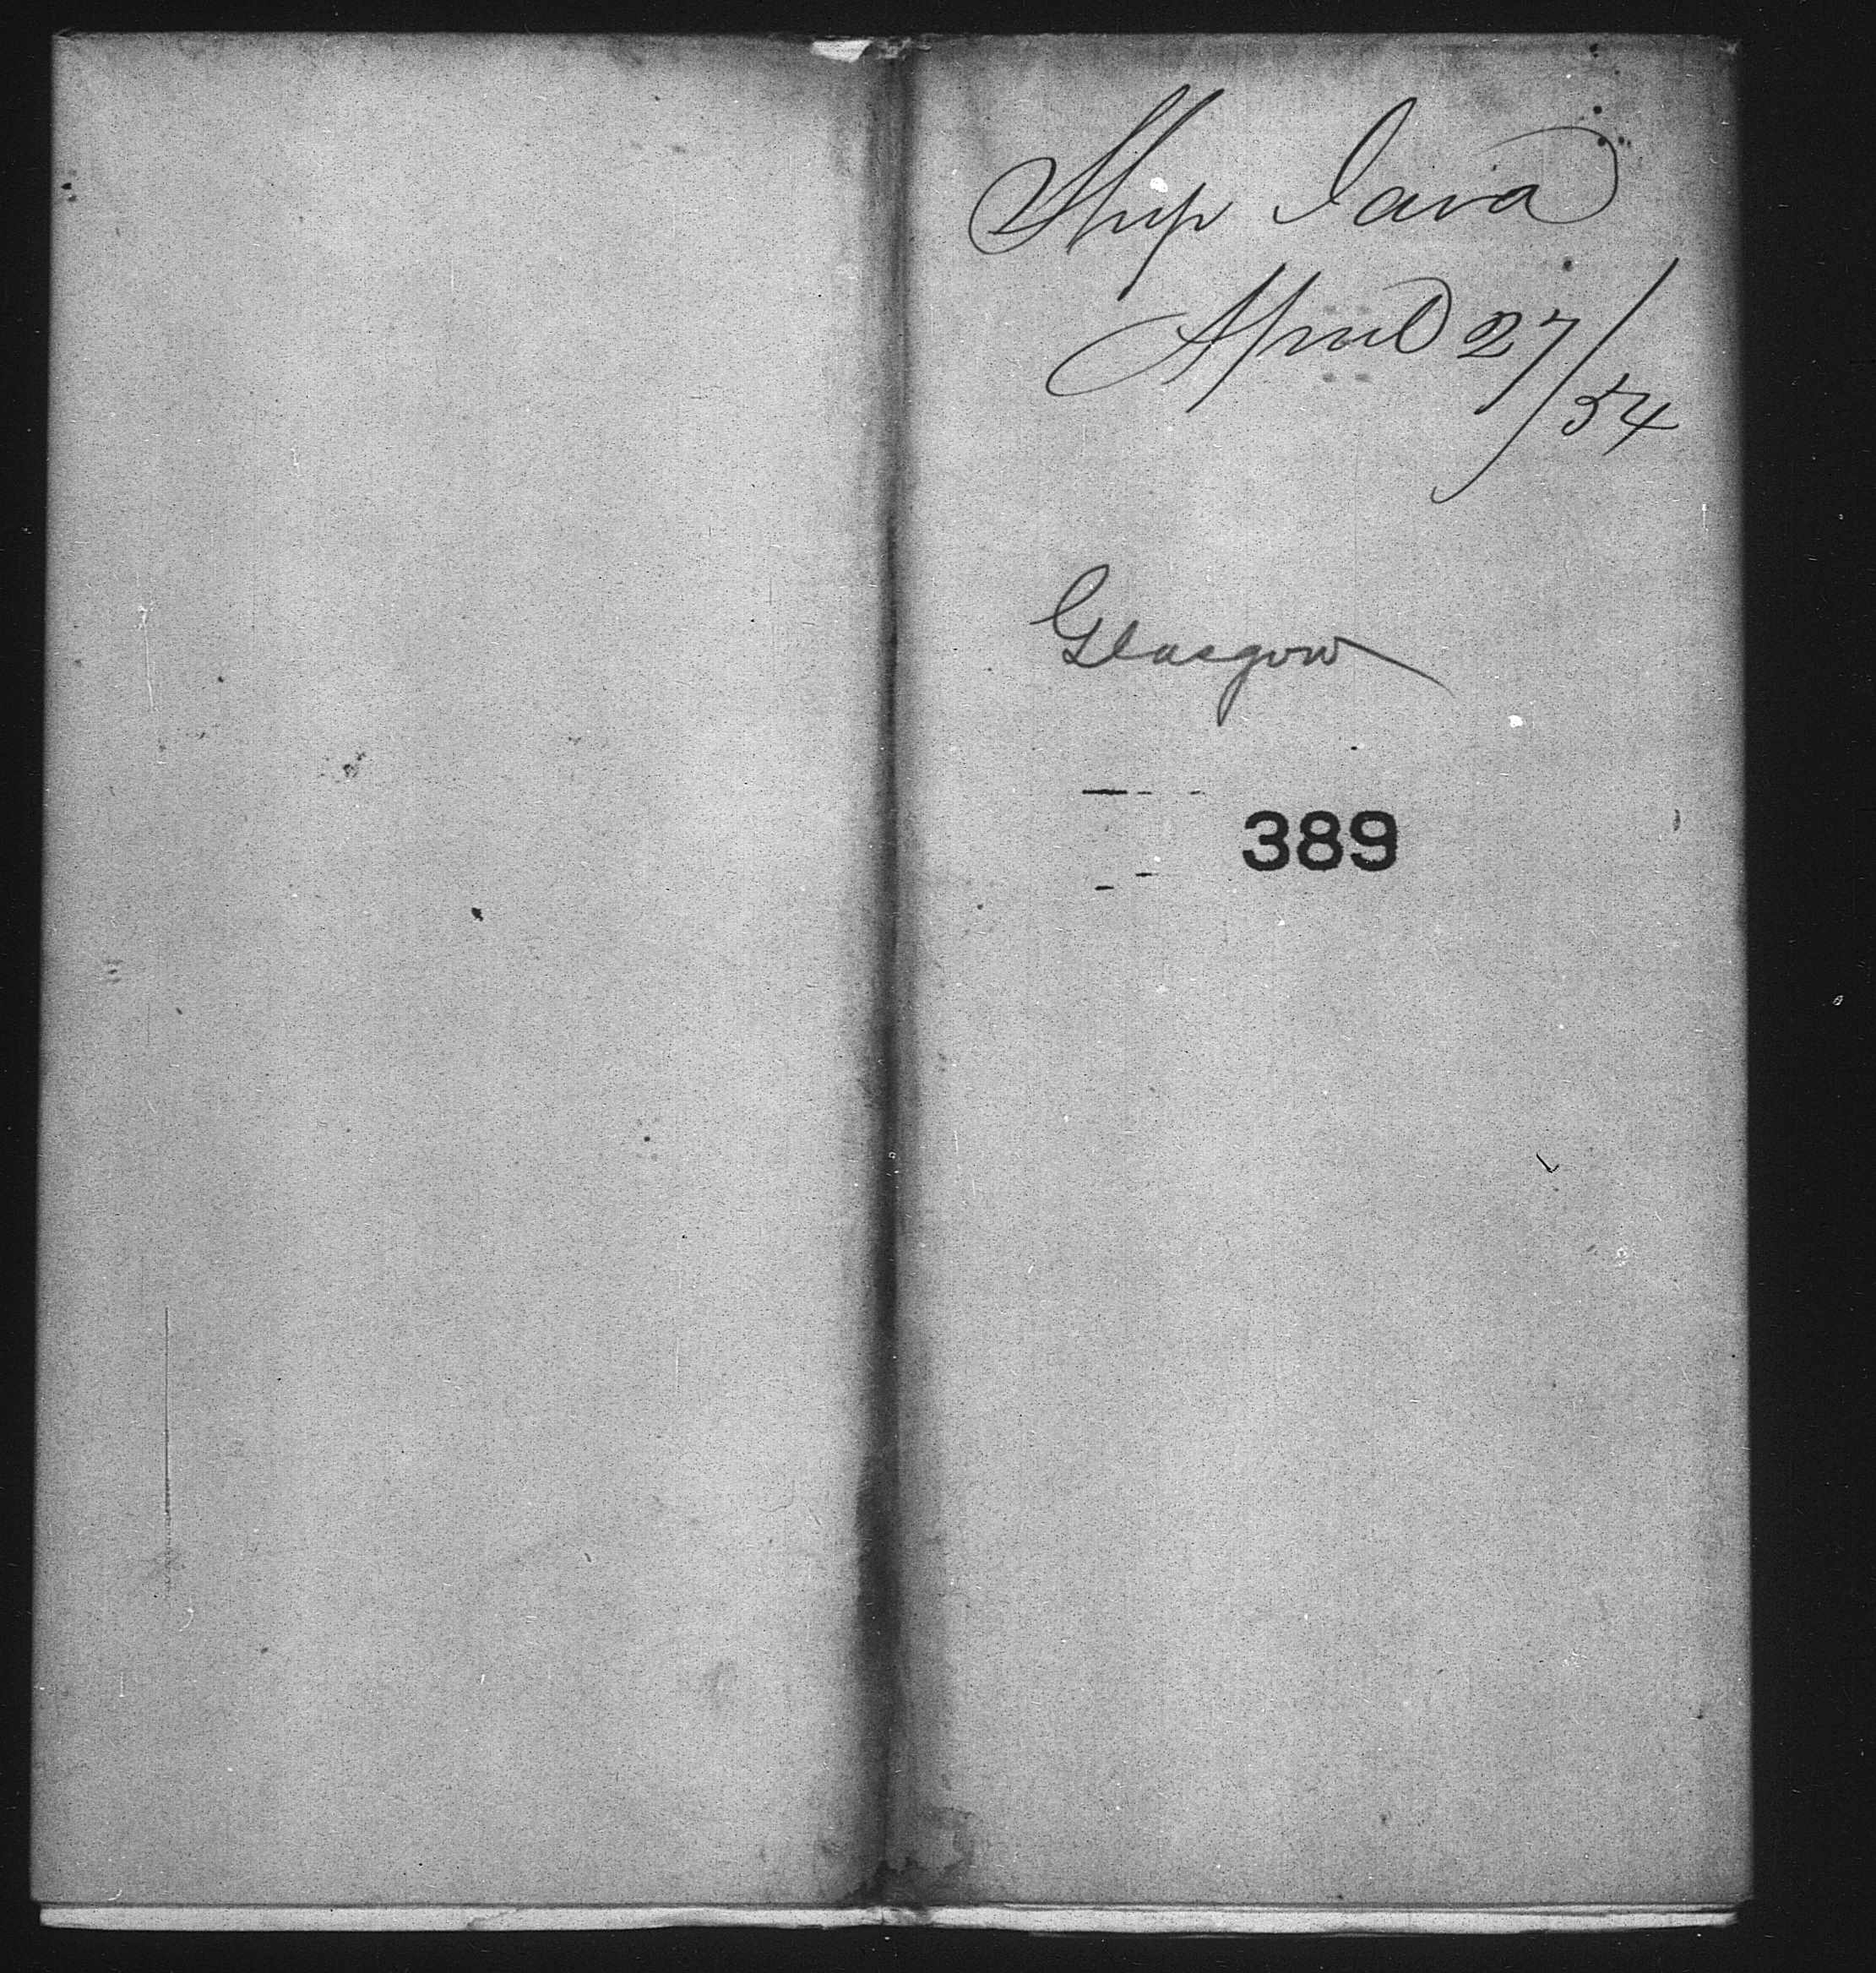 Ship Java
April 27/54
Glasgow
389